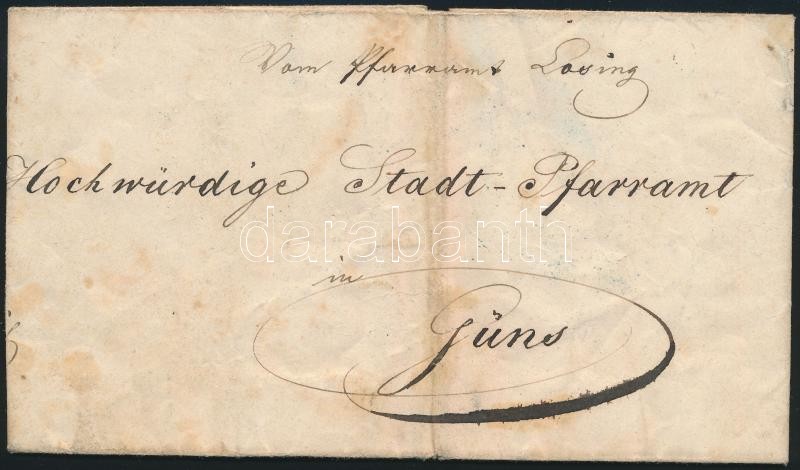 Vom Pfarramt Losing
Hochwürdige Stadt-Pfarramt
darabanth
in
Güns